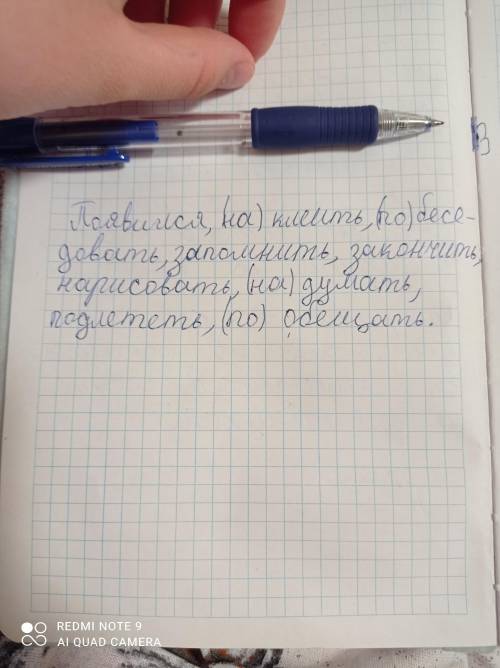 Появился, (на) клеить, (по) бесе-
довать, запомнить, закончить,
нарисовать, (на) думать,
подлететь, (по) обещать.
REDMI NOTE 9
AI QUAD CAMERA